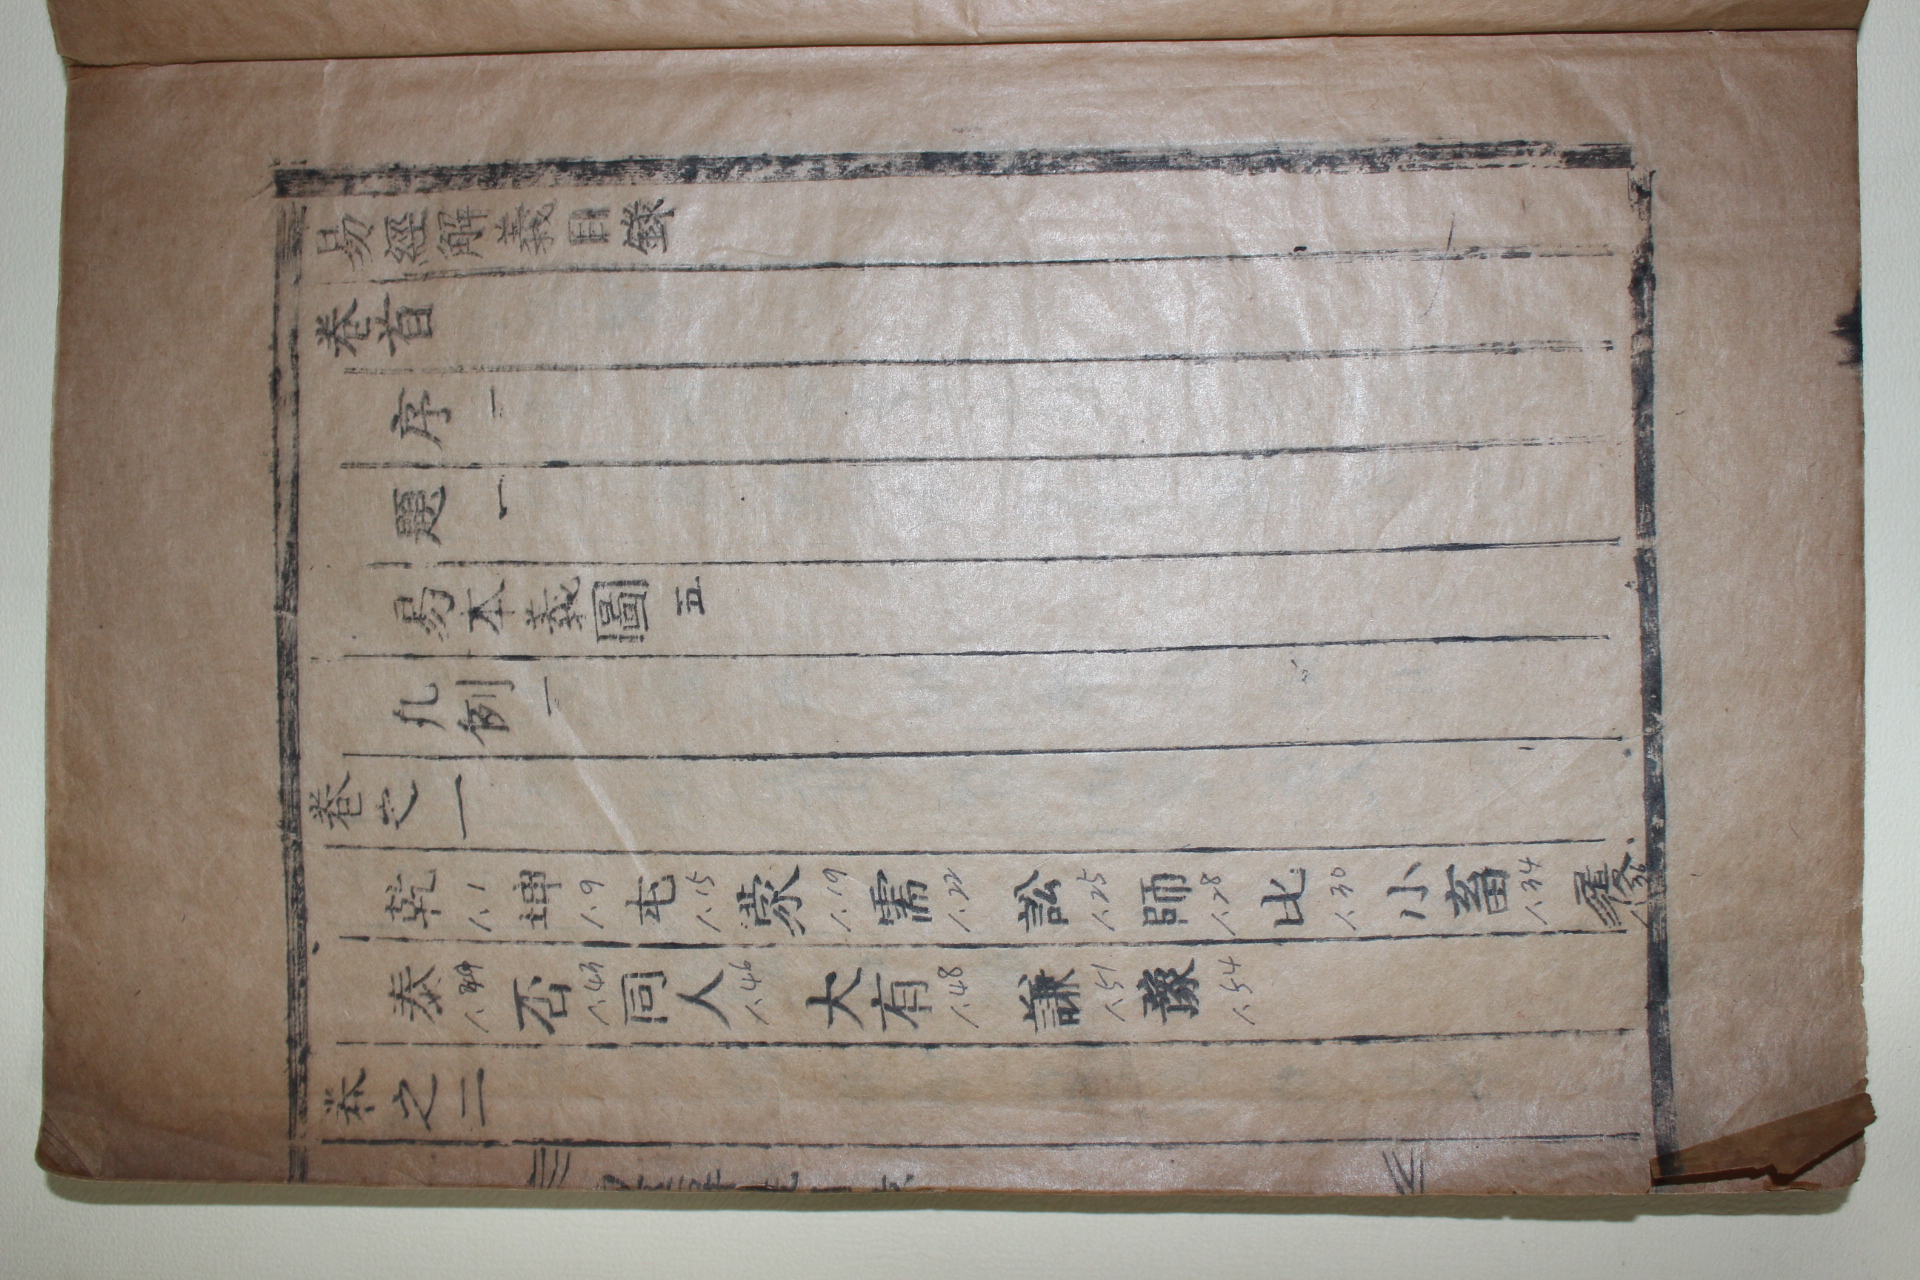 易經解義目錄
卷首
序 一
題 一
易本義圖 五
凡例 一
卷之一
乾 1.1 坤 1.9 屯 1.15 蒙 1.19 需 1.22 訟 1.25 師 1.28 比 1.30 小畜 1.34 履
泰 1.39 否 1.43 同人 1.46 大有 1.48 謙 1.51 豫 1.54
卷之二